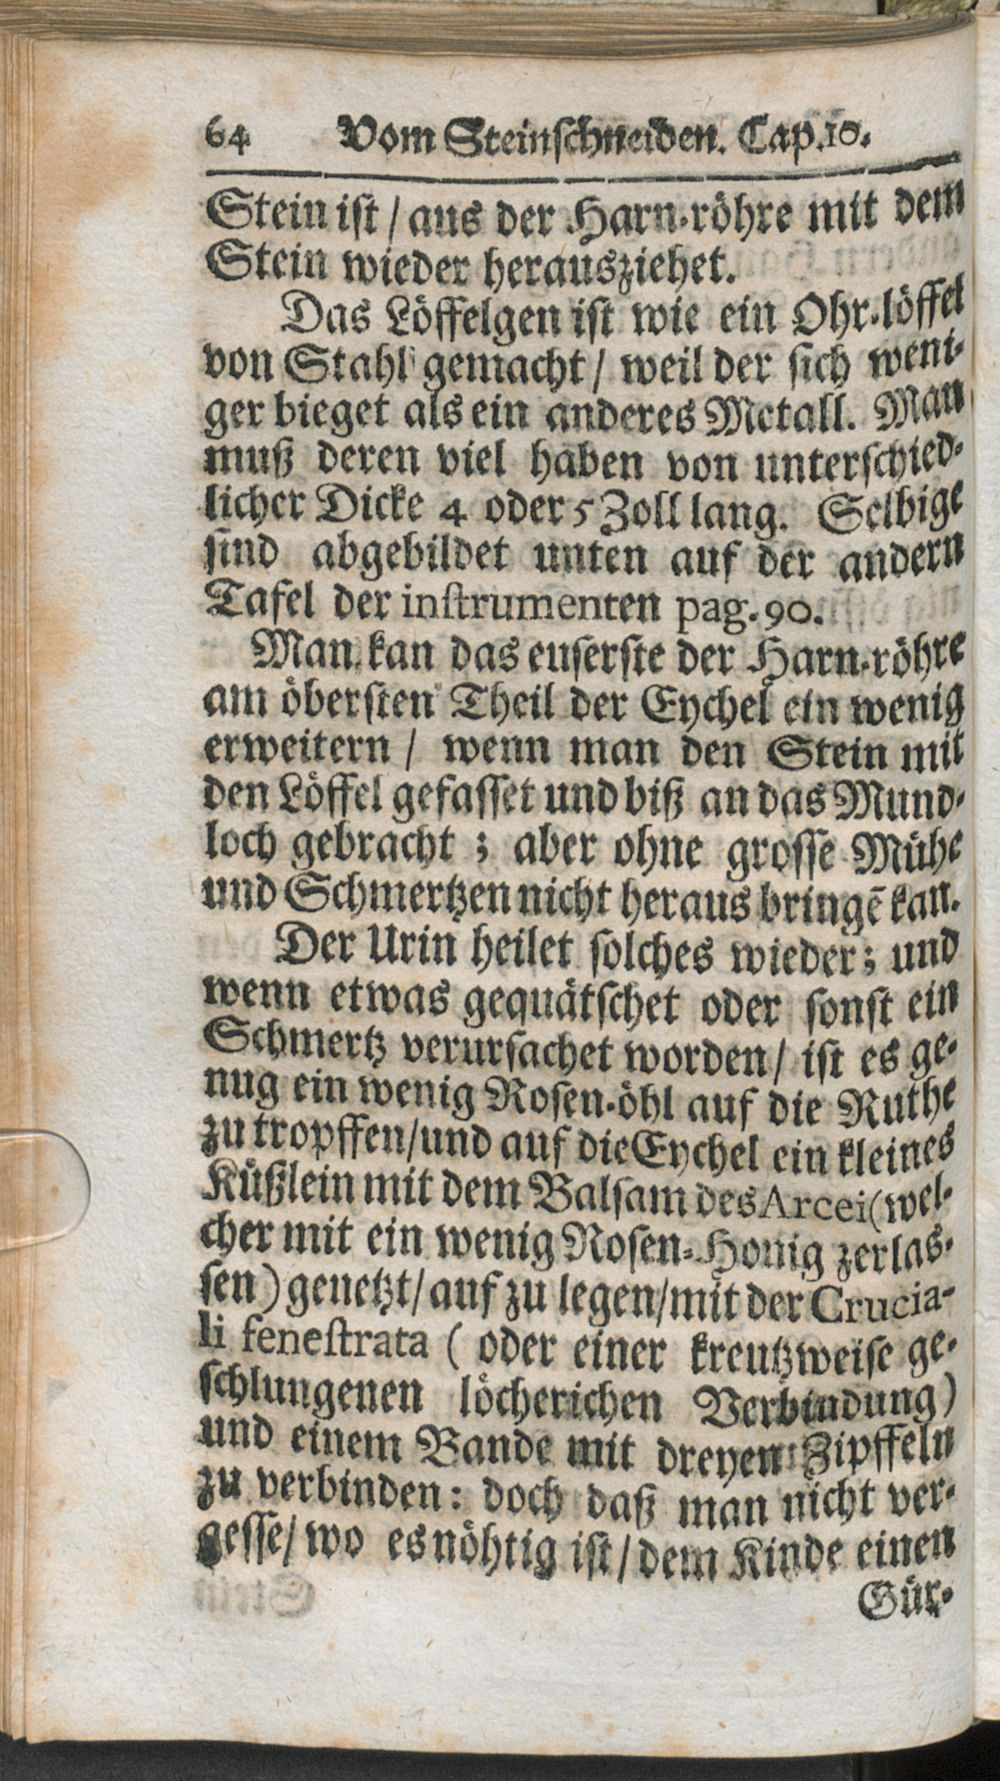 64 Vom Steinschneiden. Cap.10.
Stein ist / aus der Harn-röhre mit dem
Stein wieder herausziehet.
Das Löffelgen ist wie ein Ohr-löffel
von Stahl gemacht / weil der sich weni-
ger bieget als ein anderes Metall. Man
muß deren viel haben von unterschied-
licher Dicke 4 oder 5 Zoll lang. Selbige
sind abgebildet unten auf der andern
Tafel der instrumenten pag. 90.
Man kan das euserste der Harn-röhre
am öbersten Theil der Eychel ein wenig
erweitern / wenn man den Stein mit
den Löffel gefasset und biß an das Mund-
loch gebracht ; aber ohne grosse Mühe
und Schmertzen nicht heraus bringē kan.
Der Urin heilet solches wieder ; und
wenn etwas gequätschet oder sonst ein
Schmertz verursachet worden / ist es ge-
nug ein wenig Rosen-öhl auf die Ruthe
zu tropffen / und auf die Eychel ein kleines
Küßlein mit dem Balsam des Arcei (wel-
cher mit ein wenig Rosen-Honig zerlas-
sen ) genetzt / auf zu legen / mit der Crucia-
li fenestrata ( oder einer kreutzweise ge-
schlungenen löcherichen Verbindung )
und einem Bande mit dreyen Zipffeln
zu verbinden : doch daß man nicht ver-
gesse / wo es nöhtig ist / dem Kinde einen
Gür-